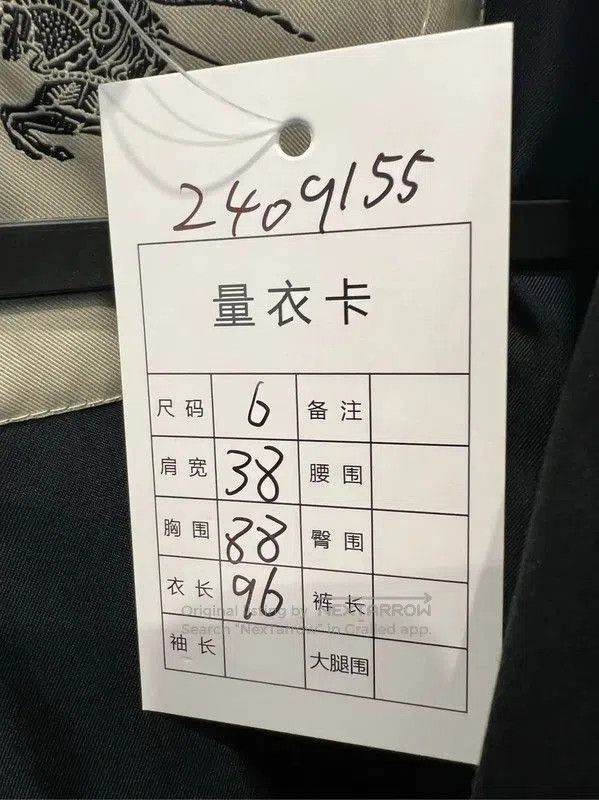 2409155
量衣卡
尺码 6 备注
肩宽 38 腰围
胸围 88 臀围
衣长 96 裤长
Original listing by NEXTARROW
Search "NexTarrow" in Grailed app.
袖长 大腿围